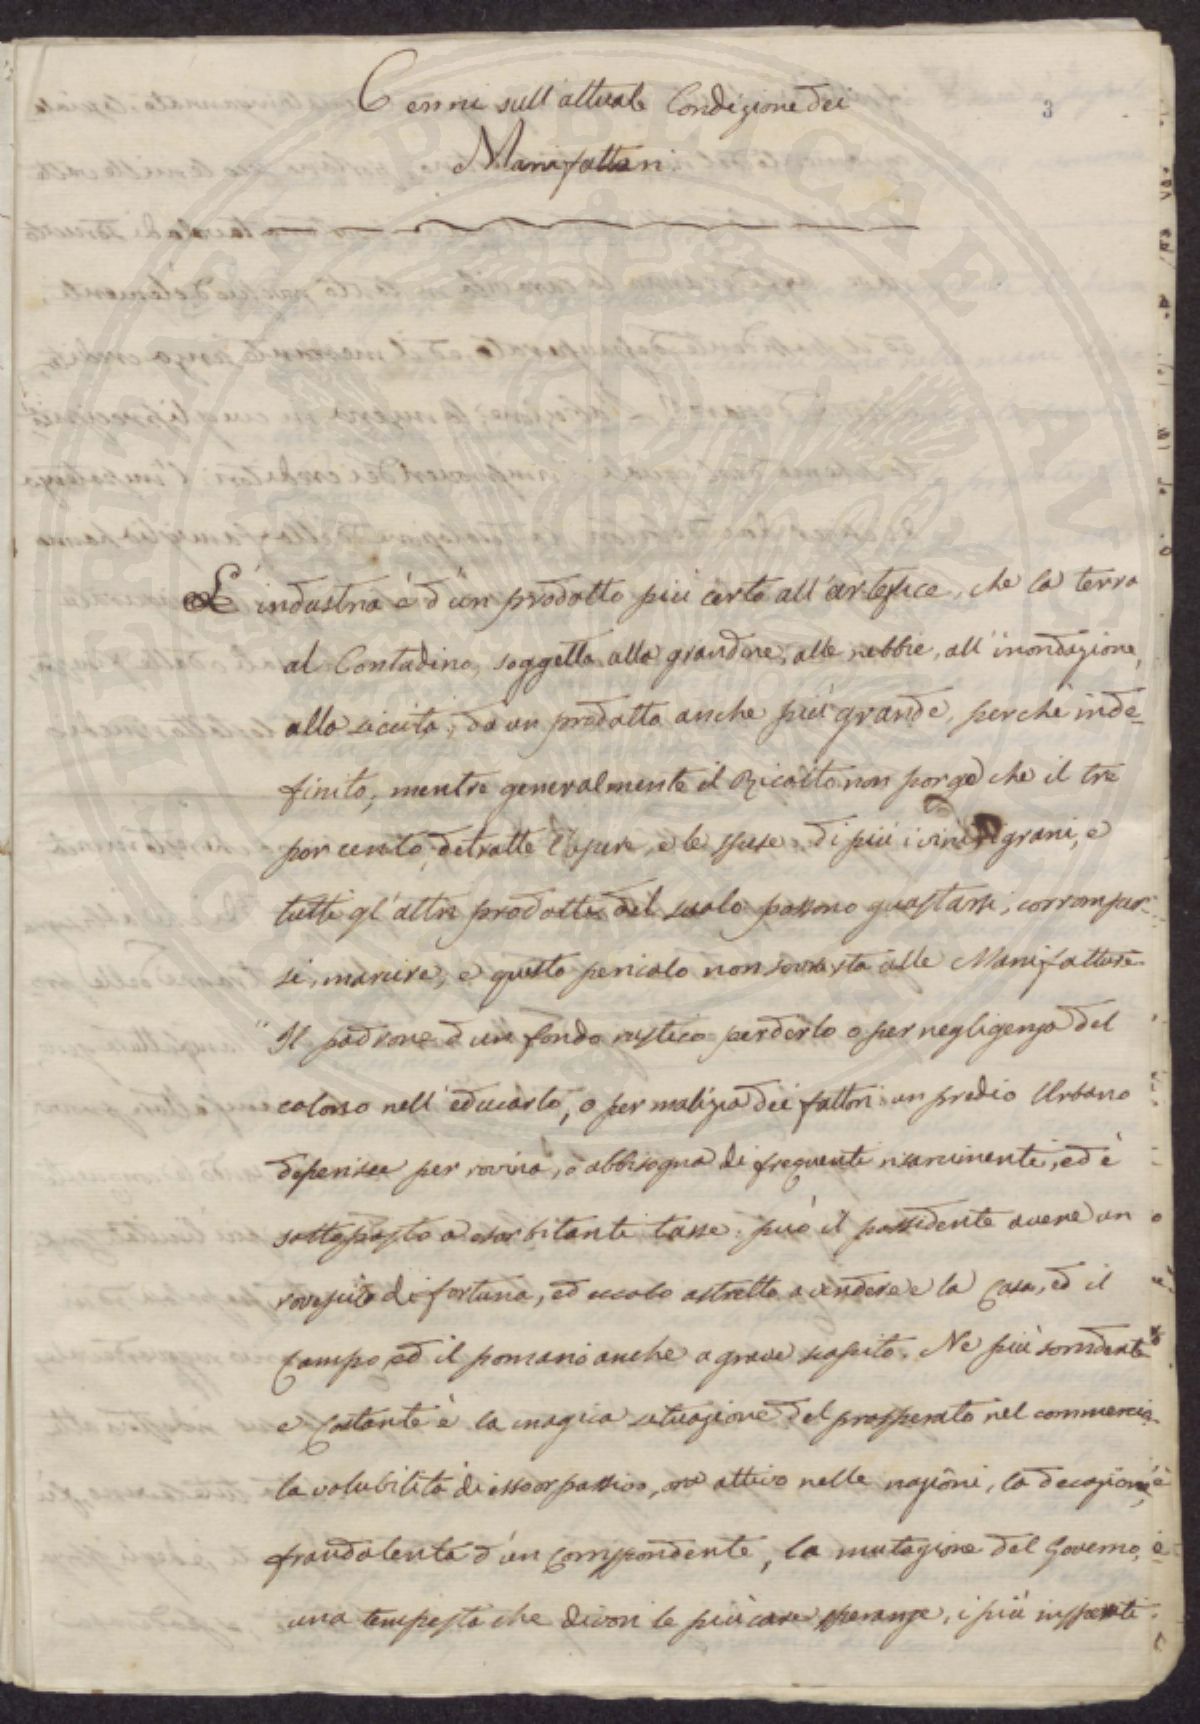 Cenni sull'attuale Condizione dei
3
Manifattori
L'industria è d'un prodotto più certo all'artefice, che la terra
al Contadino, soggetta alla grandine, alle nebbie, all'inondazione,
alla siccità; dà un prodotto anche più grande, perchè inde-
finito, mentre generalmente il Ricolto non porge che il tre
per cento, detratte l'opere, e le spese. di più i vini, i grani, e
tutti gl'altri prodotti del suolo possono guastarsi, corromper-
si, marcire, e questo pericolo non sovrasta alle Manifatture
" Il padrone d'un fondo rustico perderlo o per negligenza del
colono nell'educarlo, o per malizia dei fattori un predio Urbano
deperisce per rovina, o abbisogna di frequenti risarcimenti, ed è
sottoposto a esorbitanti tasse. può il possidente avere un
rovescio di fortuna, ed eccolo astretto a vendere e la Casa, ed il
Campo, ed il pomario anche a grave scapito. Ne più sorridente
e Costante è la magica situazione del prosperato nel commercio
la volubilità di esso or passivo, or attivo nelle nazioni, la decozione
fraudolenta d'un Corrispondente, la mutazione del Governo, è
una tempesta che divori le più care speranze, i più